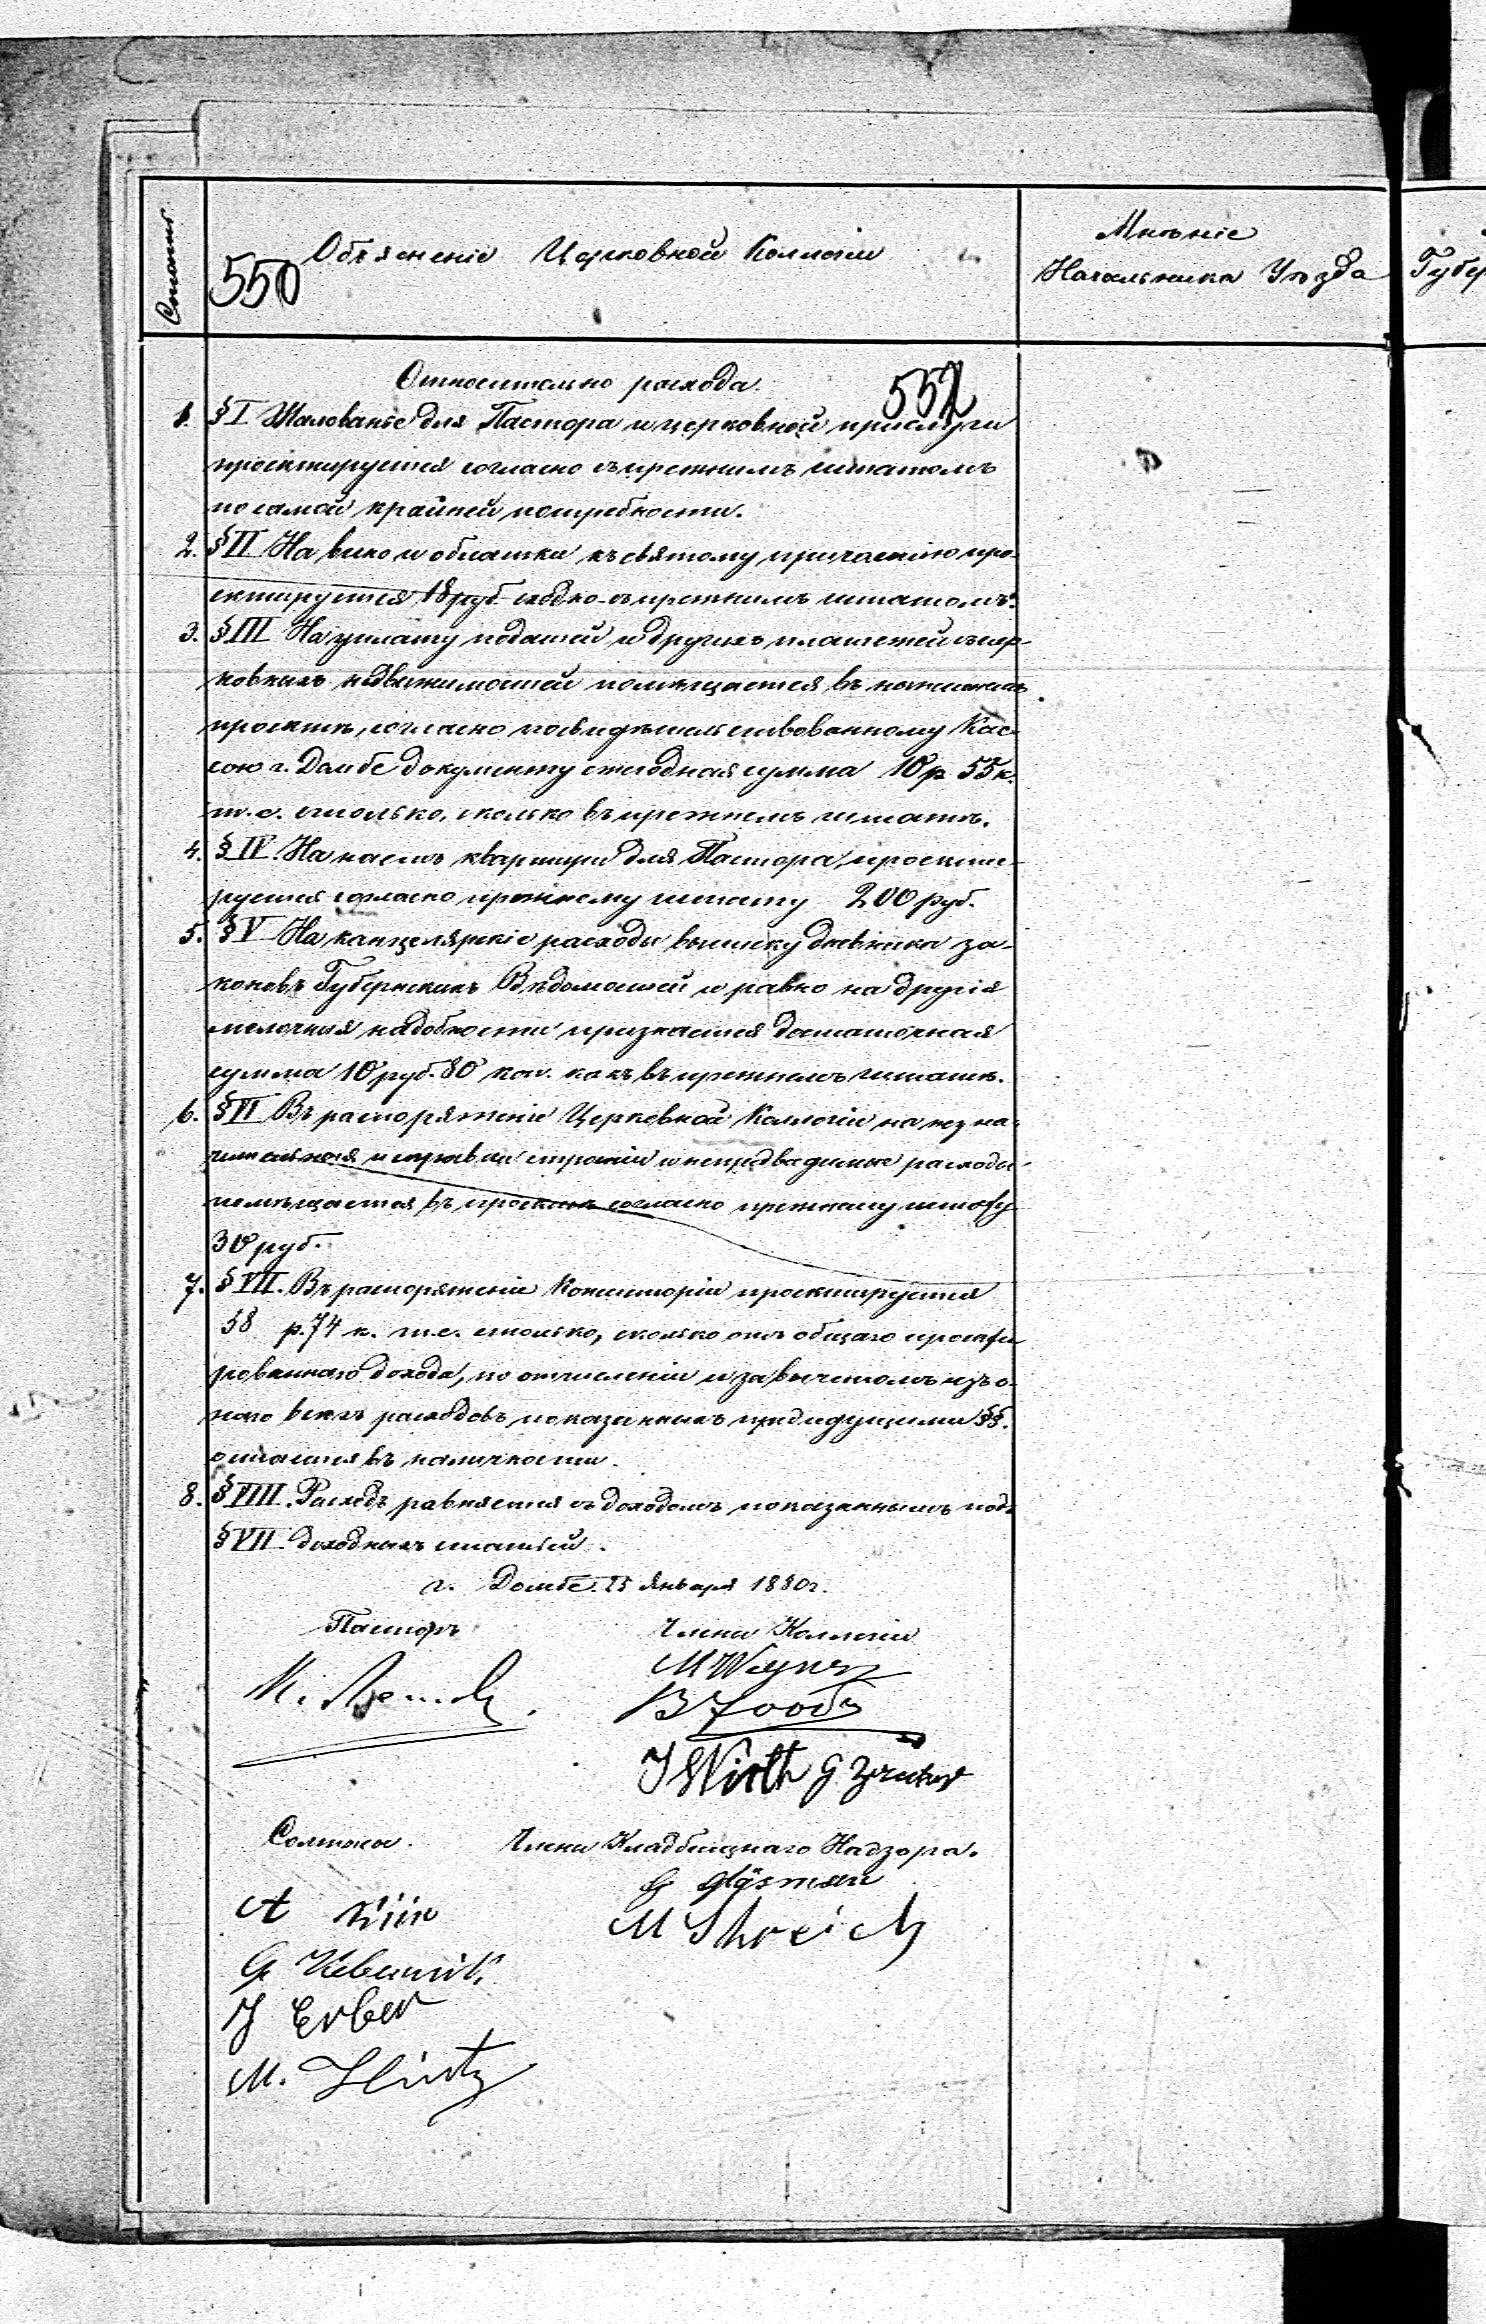 Объясненіе Церковной Коллегіи
Мнѣніе
Начальника Уѣзда
Губер
550
Относительно расхода.
552
1. § I Жалованье для Пастора и церковной прислуги
проектируется согласно съ прежнимъ штатомъ
по самой крайней потребности.
2. § II На вино и облатки къ святому причастію про-
ектируется 18 руб. сходно съ прежнимъ штатомъ.
3. § III На уплату податей и другихъ платежей съ цер-
ковныхъ недвижимостей помѣщается въ
проектѣ, согласно посвидѣтельствованному Кас-
сою г. Домбе документу ежегодная сумма 10 р 55 к.
т. е. столько, сколько въ прежнемъ штатѣ.
4. § IV. На наемъ квартиры для Пастора, проекти-
руется согласно прежнему штату 200 руб.
5. § V На канцелярскіе расходы выписку дневника за-
коновъ Губернскихъ Вѣдомостей и равно на другія
мелочныя надобности признается достаточная
сумма 10 руб. 80 коп. какъ въ прежнемъ штатѣ.
6. § VI Въ распоряженіе Церковной Коллегіи на незна-
чительныя исправки строеній и непредвидимые расходы
помѣщается въ проектѣ согласно прежнему штату
30 руб.
7. § VII. Въ распоряженіе Консисторіи проектируется
58 р. 74 к. т. е. столько, сколько отъ общаго проекти
рованнаго дохода, по отчисленіи и за вычетомъ изъ о-
наго всѣхъ расходовъ показанныхъ предидущими §§.
остается въ наличности.
8. § VIII. Расходъ равняется съ доходомъ показаннымъ подъ
§ VII. доходныхъ статьей.
г. Домбе. 25 Января 1880 г.
Пасторъ
Члены Коллегіи
M Wegner
J Wirth G
Солтысы.
Члены Кладбищнаго Надзора.
A
G
G
M
J Erber
M. Hintz